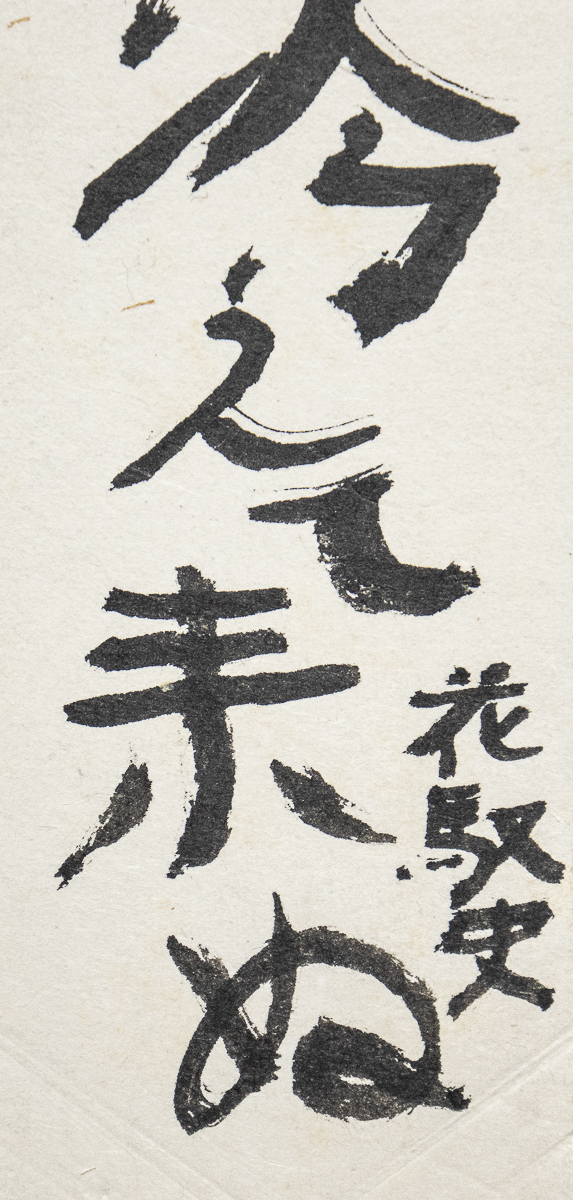 冷えて来ぬ
花馭史